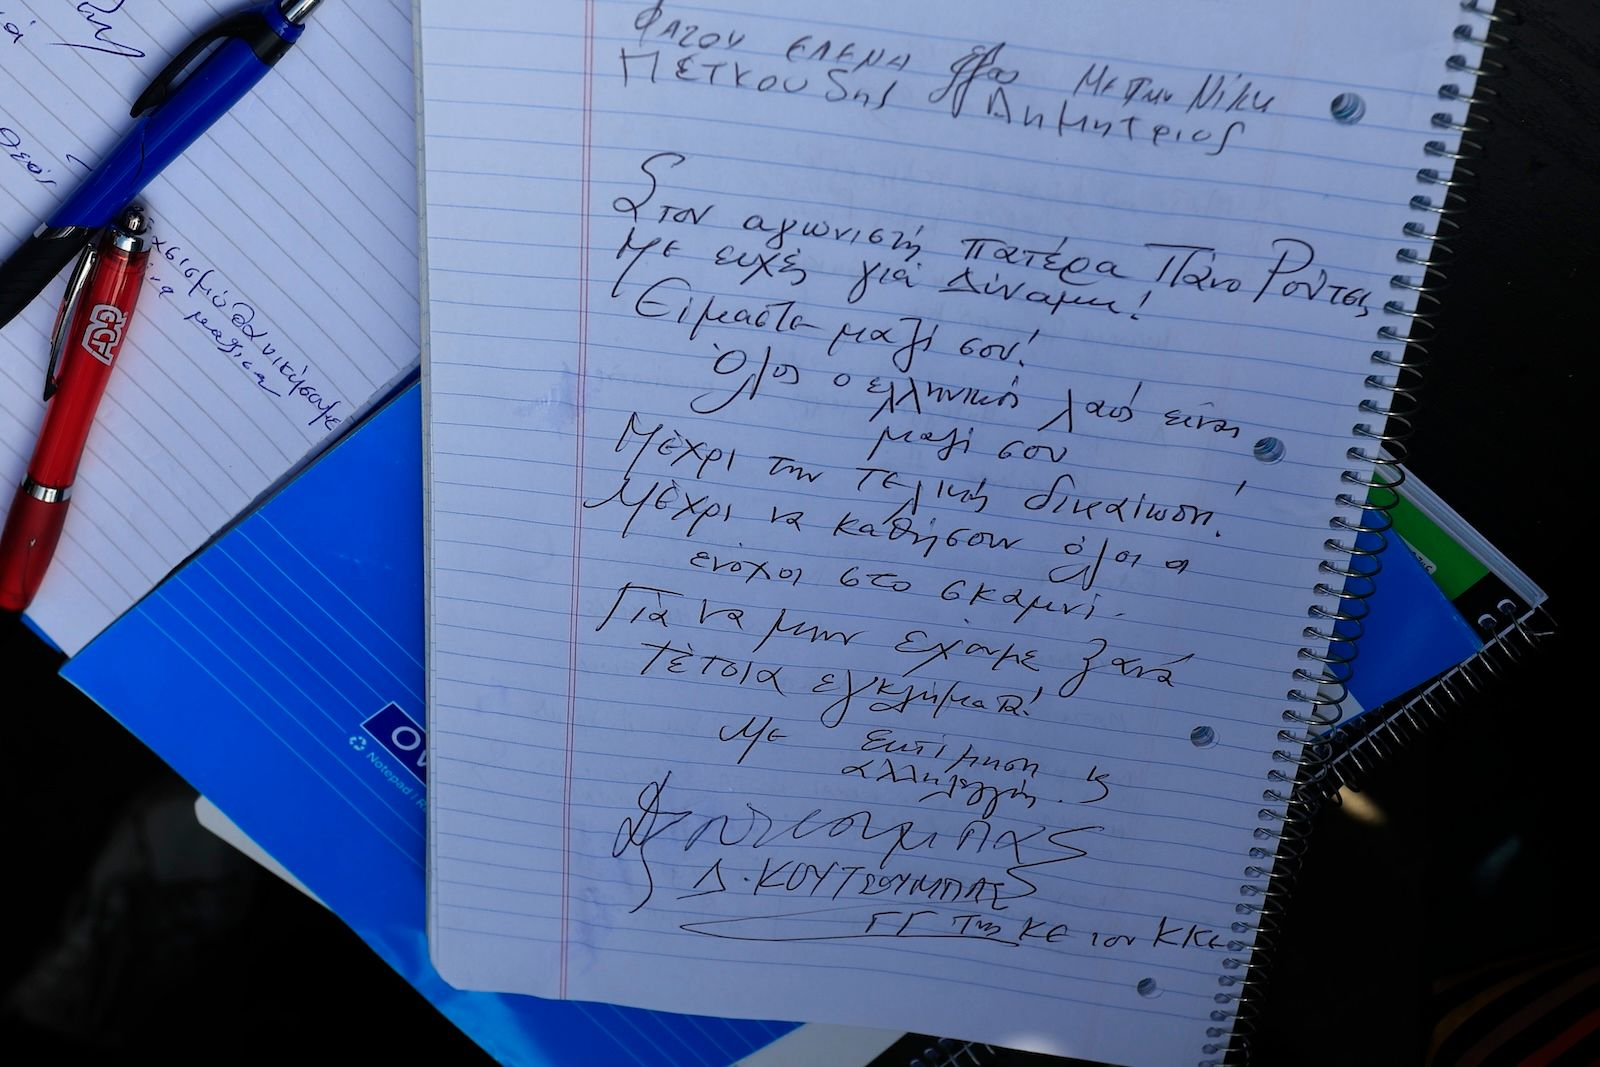 ΦΑΖΟΥ ΕΛΕΝΑ Με την Νίκη
ΠΕΤΚΟΥδης Δημητριος
Στον αγωνιστή πατέρα Πάνο Ρούτσι,
Με ευχές για Δύναμη!
Είμαστε μαζί σου!
Όλος ο ελληνικός λαός είναι
μαζί σου
Μέχρι την τελική δικαίωση!
Μέχρι να καθήσουν όλοι οι
ενόχοι στο σκαμνί.
Για να μην έχουμε ξανά
τέτοια εγκλήματα!
Με εκτίμηση κ
αλληλεγγύη.
Δ. ΚΟΥΤΣΟΥΜΠΑΣ
ΓΓ της ΚΕ του ΚΚΕ
θα νικήσουμε
μαζί σα
ADP
Notepad